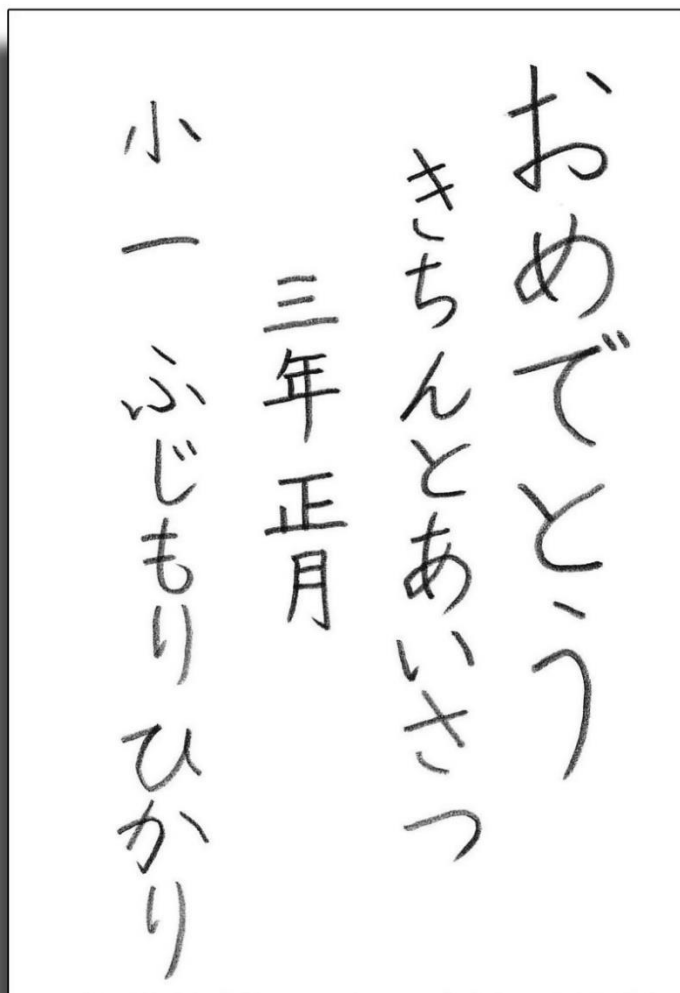 おめでとう
きちんとあいさつ
三年 正月
小一 ふじもり ひかり